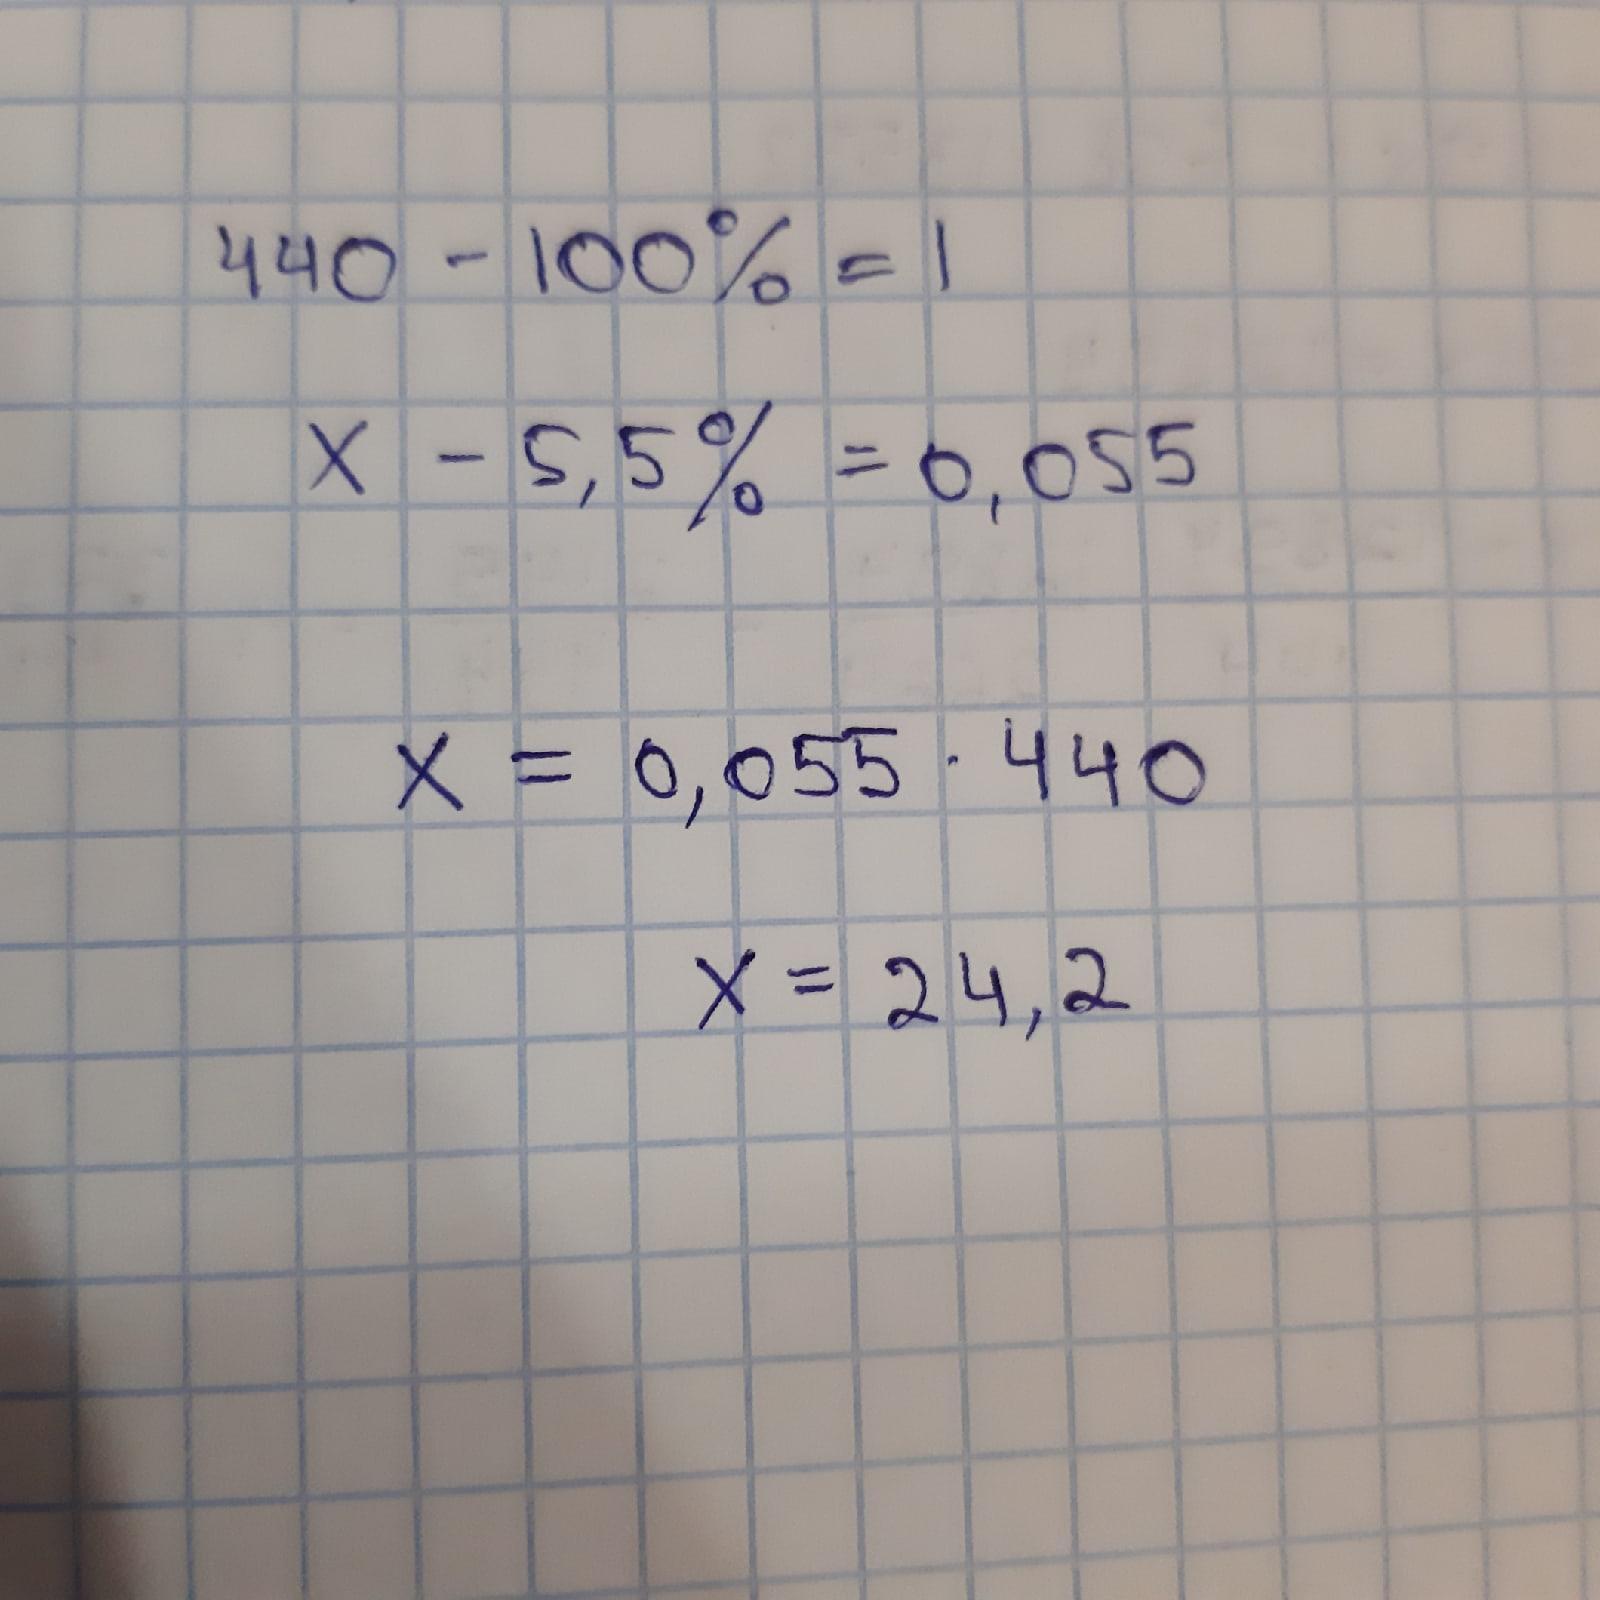 440 - 100% = 1
x - 5,5% = 0,055
x = 0,055 · 440
x = 24,2